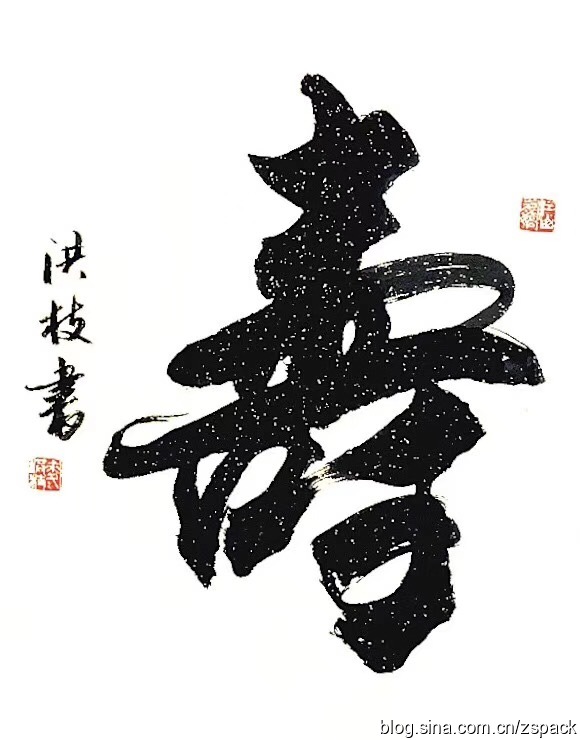 壽
洪枝書
blog.sina.com.cn/zspack